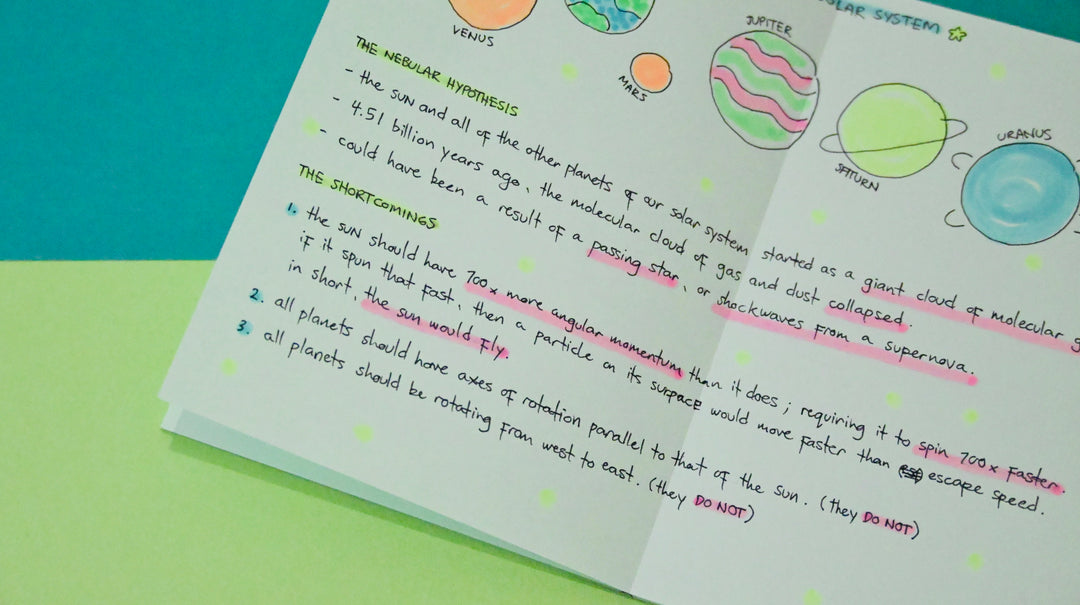 SOLAR SYSTEM
VENUS
MARS
JUPITER
SATURN
URANUS
THE NEBULAR HYPOTHESIS
- the sun and all of the other planets of our solar system started as a giant cloud of molecular
- 4.51 billion years ago, the molecular cloud of gas and dust collapsed.
- could have been a result of a passing star, or shockwaves from a supernova.
THE SHORTCOMINGS
1. the sun should have 700x more angular momentum than it does; requiring it to spin 700x faster.
if it spun that fast, then a particle on its surface would move faster than escape speed.
in short, the sun would fly.
2. all planets should have axes of rotation parallel to that of the sun. (they DO NOT)
3. all planets should be rotating from west to east. (they DO NOT)